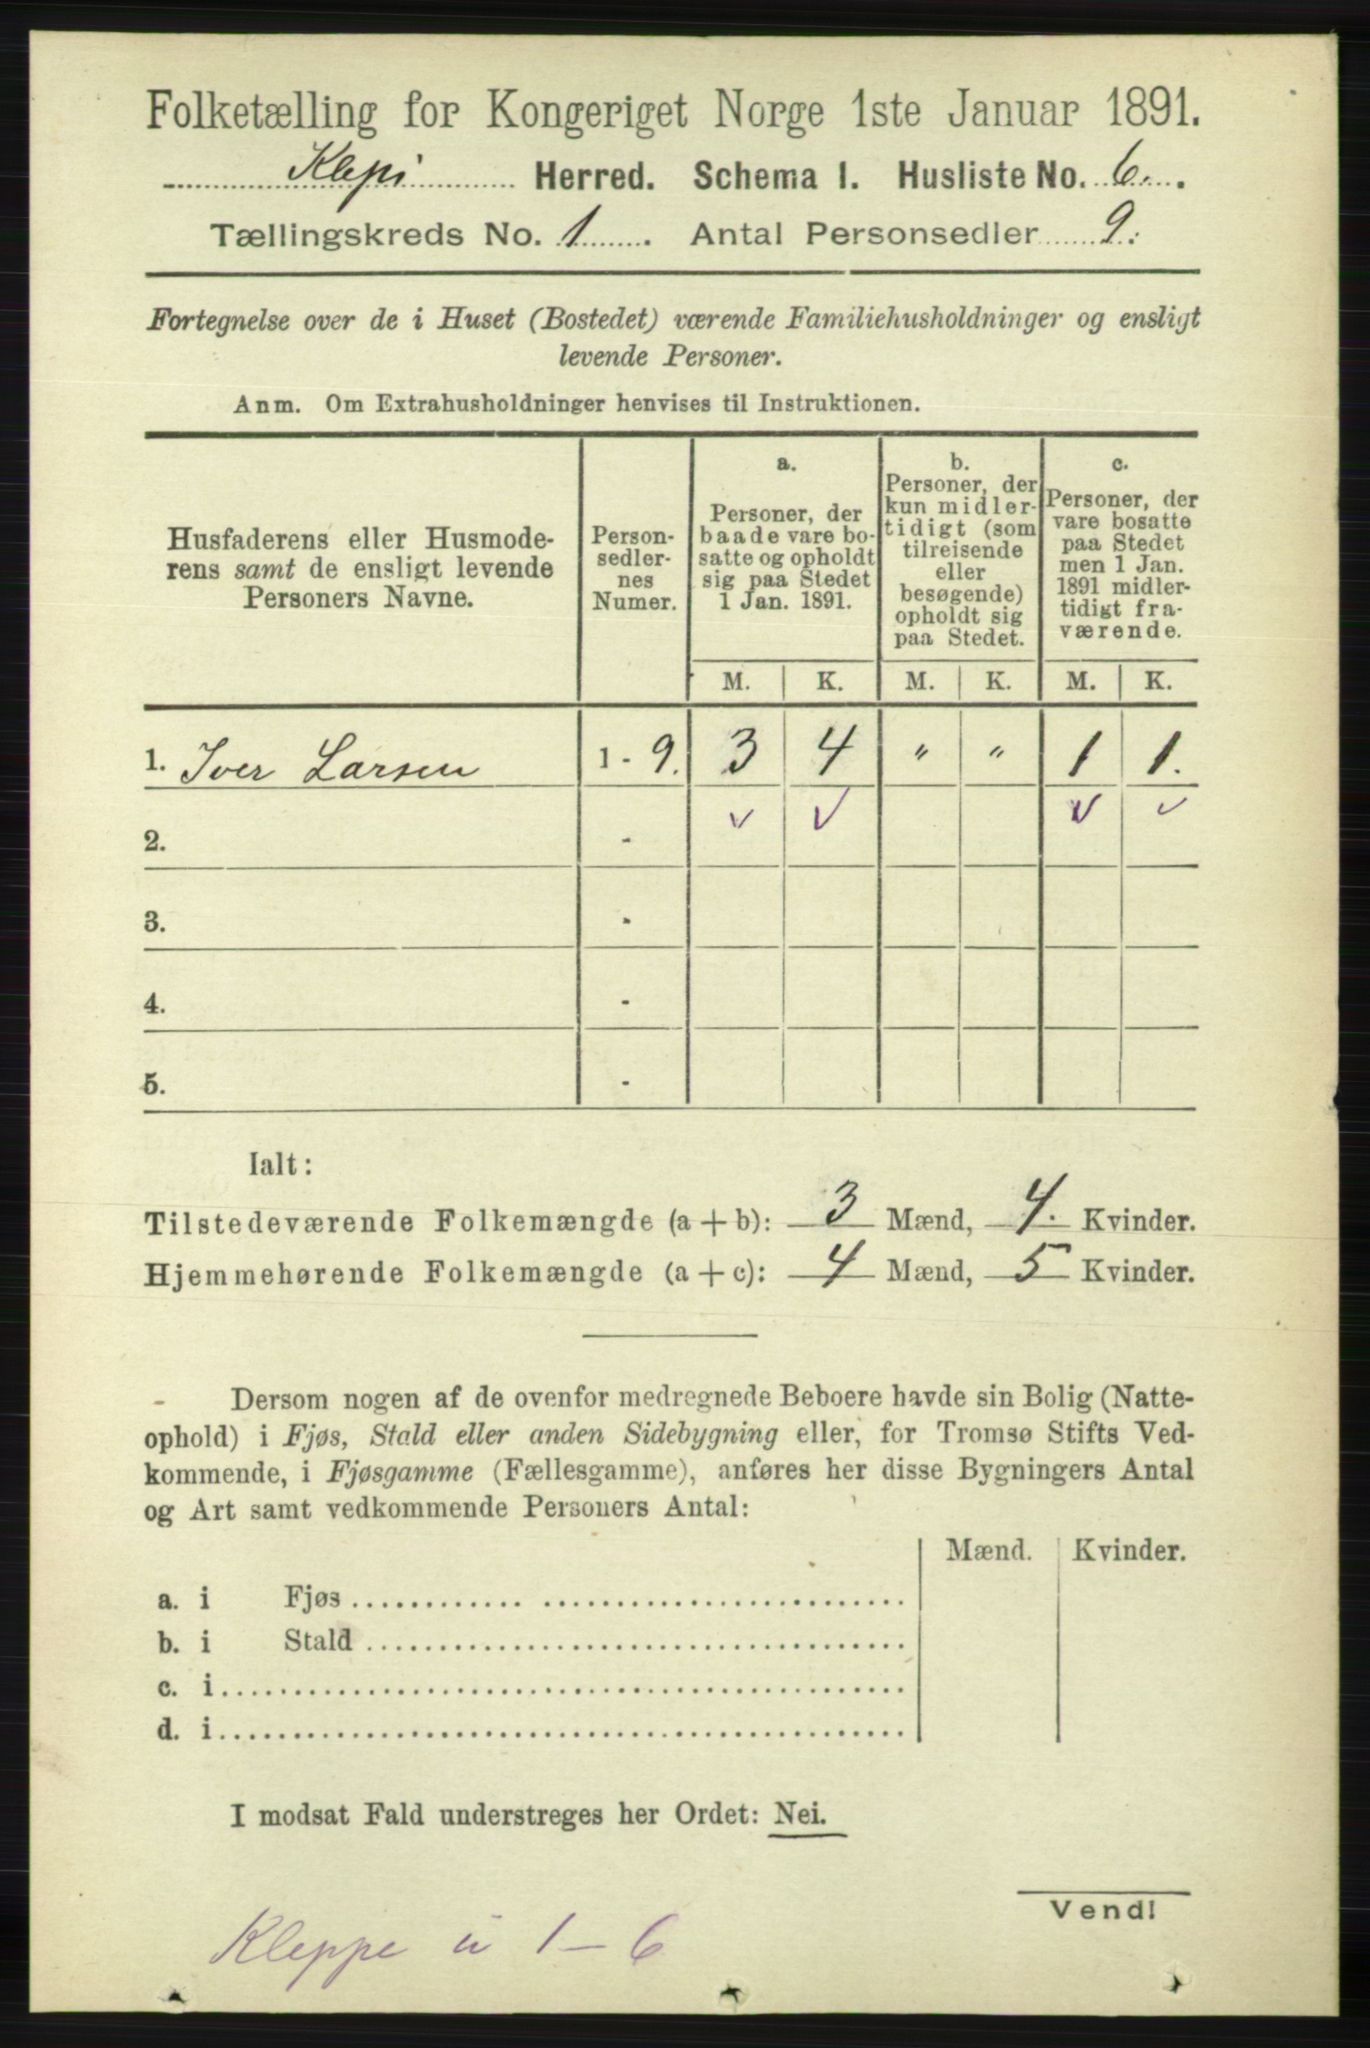 Folketælling for Kongeriget Norge 1ste Januar 1891.
Klepi Herred. Schema I. Husliste No. 6.
Tællingskreds No. 1. Antal Personsedler 9.
Fortegnelse over de i Huset (Bostedet) værende Familiehusholdninger og ensligt
levende Personer.
Anm. Om Extrahusholdninger henvises til Instruktionen.
Husfaderens eller Husmode-
rens samt de ensligt levende
Personers Navne.
Person-
sedler-
nes
Numer.
a.
Personer, der
baade vare bo-
satte og opholdt
sig paa Stedet
1 Jan. 1891.
b.
Personer, der
kun midler-
tidigt (som
tilreisende
eller
besøgende)
opholdt sig
paa Stedet.
c.
Personer, der
vare bosatte
paa Stedet
men 1 Jan.
1891 midler-
tidigt fra-
værende.
M. K. M. K. M. K.
1. Iver Larsen 1 - 9. 3 4 " " 1 1.
2. -
3. -
4. -
5. -
Ialt:
Tilstedeværende Folkemængde (a + b): 3 Mænd, 4. Kvinder.
Hjemmehørende Folkemængde (a + c): 4 Mænd, 5 Kvinder.
Dersom nogen af de ovenfor medregnede Beboere havde sin Bolig (Natte-
ophold) i Fjøs, Stald eller anden Sidebygning eller, for Tromsø Stifts Ved-
kommende, i Fjøsgamme (Fællesgamme), anføres her disse Bygningers Antal
og Art samt vedkommende Personers Antal:
Mænd. Kvinder.
a. i Fjøs
b. i Stald
c. i
d. i
I modsat Fald understreges her Ordet: Nei.
Vend!
Kleppe u 1-6